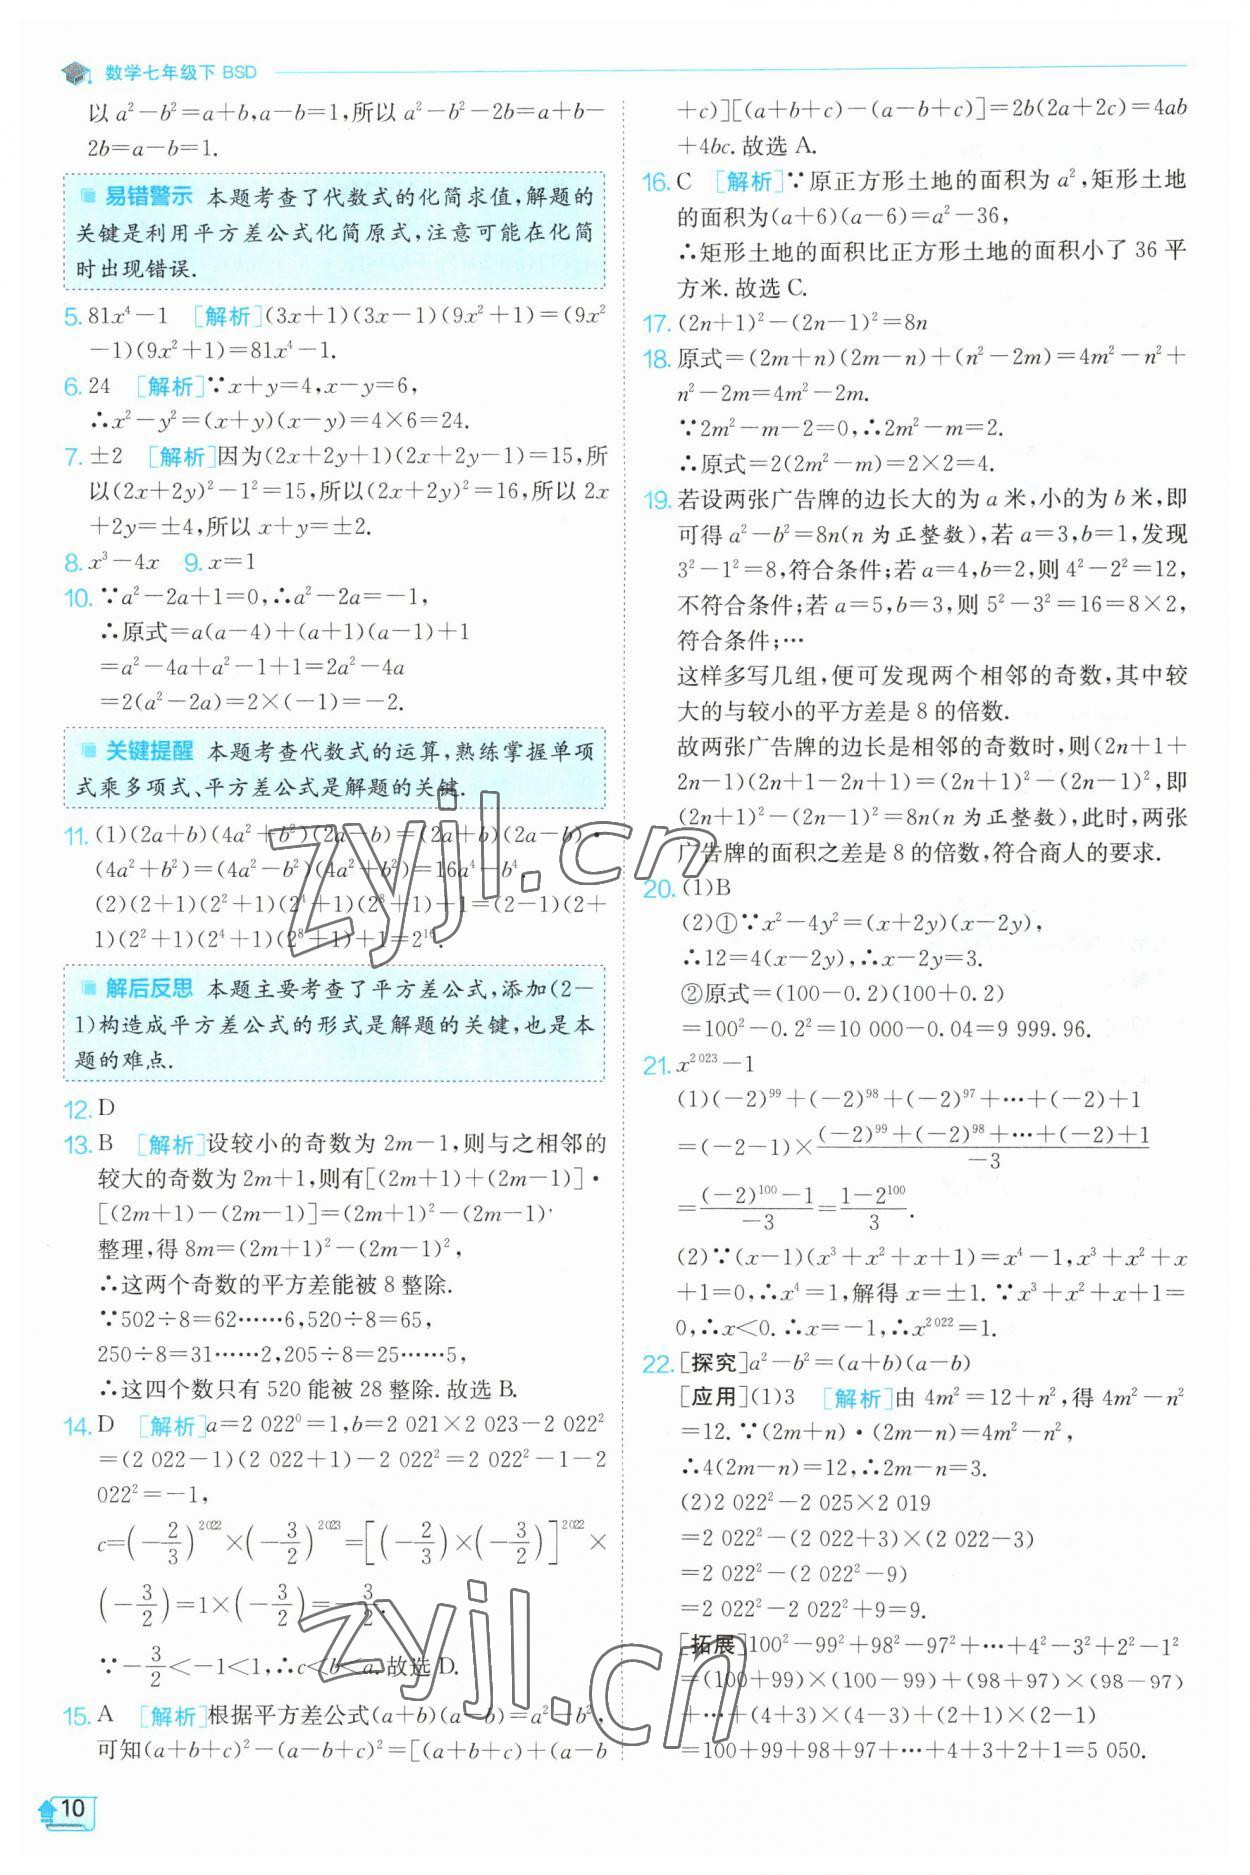 数学七年级下 BSD
以 a²－b²＝a＋b,a－b＝1,所以 a²－b²－2b＝a＋b－
2b＝a－b＝1.
易错警示 本题考查了代数式的化简求值,解题的
关键是利用平方差公式化简原式,注意可能在化简
时出现错误.
5. 81x⁴－1 [解析](3x＋1)(3x－1)(9x²＋1)＝(9x²
－1)(9x²＋1)＝81x⁴－1.
6. 24 [解析]∵x＋y＝4,x－y＝6,
∴x²－y²＝(x＋y)(x－y)＝4×6＝24.
7. ±2 [解析]因为(2x＋2y＋1)(2x＋2y－1)＝15,所
以(2x＋2y)²－1²＝15,所以(2x＋2y)²＝16,所以 2x
＋2y＝±4,所以 x＋y＝±2.
8. x³－4x 9. x＝1
10. ∵a²－2a＋1＝0,∴a²－2a＝－1,
∴原式＝a(a－4)＋(a＋1)(a－1)＋1
＝a²－4a＋a²－1＋1＝2a²－4a
＝2(a²－2a)＝2×(－1)＝－2.
关键提醒 本题考查代数式的运算,熟练掌握单项
式乘多项式、平方差公式是解题的关键.
11. (1)(2a＋b)(4a²＋b²)(2a－b)＝(2a＋b)(2a－b)·
(4a²＋b²)＝(4a²－b²)(4a²＋b²)＝16a⁴－b⁴.
(2)(2＋1)(2²＋1)(2⁴＋1)(2⁸＋1)＋1＝(2－1)(2＋
1)(2²＋1)(2⁴＋1)(2⁸＋1)＋1＝2¹⁶.
解后反思 本题主要考查了平方差公式,添加(2－
1)构造成平方差公式的形式是解题的关键,也是本
题的难点.
12. D
13. B [解析]设较小的奇数为 2m－1,则与之相邻的
较大的奇数为 2m＋1,则有[(2m＋1)＋(2m－1)]·
[(2m＋1)－(2m－1)]＝(2m＋1)²－(2m－1)²
整理,得 8m＝(2m＋1)²－(2m－1)²,
∴这两个奇数的平方差能被 8 整除.
∵502÷8＝62……6,520÷8＝65,
250÷8＝31……2,205÷8＝25……5,
∴这四个数只有 520 能被 28 整除.故选 B.
14. D [解析]a＝2 022⁰＝1,b＝2 021×2 023－2 022²
＝(2 022－1)(2 022＋1)－2 022²＝2 022²－1－2
022²＝－1,
c＝(－2/3)²⁰²²×(－3/2)²⁰²³＝[(－2/3)×(－3/2)]²⁰²²×
(－3/2)＝1×(－3/2)＝－3/2.
∵－3/2＜－1＜1,∴c＜b＜a.故选 D.
15. A [解析]根据平方差公式(a＋b)(a－b)＝a²－b²,
可知(a＋b＋c)²－(a－b＋c)²＝[(a＋b＋c)＋(a－b
＋c)][(a＋b＋c)－(a－b＋c)]＝2b(2a＋2c)＝4ab
＋4bc.故选 A.
16. C [解析]∵原正方形土地的面积为 a²,矩形土地
的面积为(a＋6)(a－6)＝a²－36,
∴矩形土地的面积比正方形土地的面积小了 36 平
方米.故选 C.
17. (2n＋1)²－(2n－1)²＝8n
18. 原式＝(2m＋n)(2m－n)＋(n²－2m)＝4m²－n²＋
n²－2m＝4m²－2m.
∵2m²－m－2＝0,∴2m²－m＝2.
∴原式＝2(2m²－m)＝2×2＝4.
19. 若设两张广告牌的边长大的为 a 米,小的为 b 米,即
可得 a²－b²＝8n(n 为正整数),若 a＝3,b＝1,发现
3²－1²＝8,符合条件;若 a＝4,b＝2,则 4²－2²＝12,
不符合条件;若 a＝5,b＝3,则 5²－3²＝16＝8×2,
符合条件;…
这样多写几组,便可发现两个相邻的奇数,其中较
大的与较小的平方差是 8 的倍数.
故两张广告牌的边长是相邻的奇数时,则(2n＋1＋
2n－1)(2n＋1－2n＋1)＝(2n＋1)²－(2n－1)²,即
(2n＋1)²－(2n－1)²＝8n(n 为正整数),此时,两张
广告牌的面积之差是 8 的倍数,符合商人的要求.
20. (1)B
(2)①∵x²－4y²＝(x＋2y)(x－2y),
∴12＝4(x－2y),∴x－2y＝3.
②原式＝(100－0.2)(100＋0.2)
＝100²－0.2²＝10 000－0.04＝9 999.96.
21. x²⁰²³－1
(1)(－2)⁹⁹＋(－2)⁹⁸＋(－2)⁹⁷＋…＋(－2)＋1
＝(－2－1)×((－2)⁹⁹＋(－2)⁹⁸＋…＋(－2)＋1)/(－3)
＝((－2)¹⁰⁰－1)/(－3)＝(1－2¹⁰⁰)/3.
(2)∵(x－1)(x³＋x²＋x＋1)＝x⁴－1,x³＋x²＋x
＋1＝0,∴x⁴＝1,解得 x＝±1.∵x³＋x²＋x＋1＝
0,∴x＜0.∴x＝－1,∴x²⁰²²＝1.
22. [探究]a²－b²＝(a＋b)(a－b)
[应用](1)3 [解析]由 4m²＝12＋n²,得 4m²－n²
＝12.∵(2m＋n)·(2m－n)＝4m²－n²,
∴4(2m－n)＝12,∴2m－n＝3.
(2)2 022²－2 025×2 019
＝2 022²－(2 022＋3)×(2 022－3)
＝2 022²－(2 022²－9)
＝2 022²－2 022²＋9＝9.
[拓展]100²－99²＋98²－97²＋…＋4²－3²＋2²－1²
＝(100＋99)×(100－99)＋(98＋97)×(98－97)
＋…＋(4＋3)×(4－3)＋(2＋1)×(2－1)
＝100＋99＋98＋97＋…＋4＋3＋2＋1＝5 050.
10
zyjl.cn
zyjl.cn